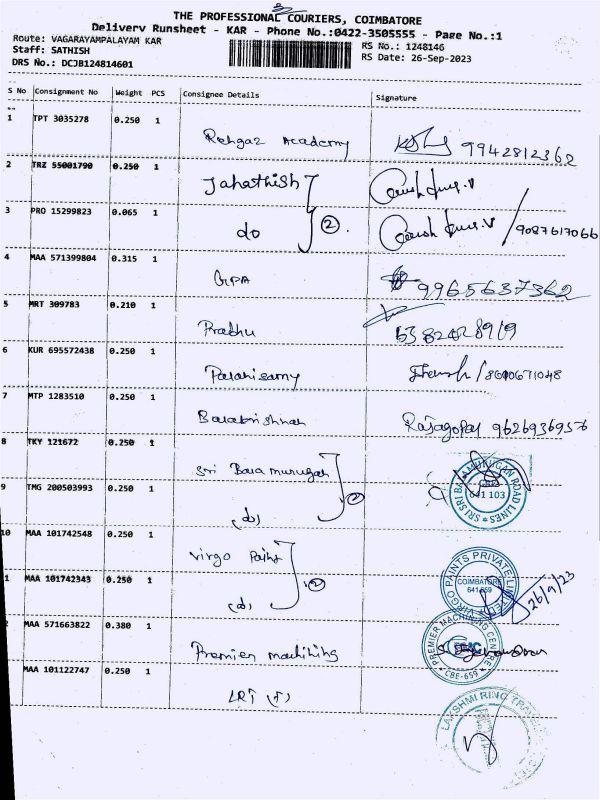 THE PROFESSIONAL COURIERS, COIMBATORE
Delivery Runsheet - KAR - Phone No.:0422-3505555 - Page No.:1
Route: VAGARAYAMPALAYAM KAR
RS No.: 1248146
Staff: SATHISH
RS Date: 26-Sep-2023
DRS No.: DCJB124814601
S No Consignment No Weight PCS Consignee Details Signature
1 TPT 3035278 0.250 1
Rehgaz Academy 9942812362
2 TRZ 55001790 0.250 1
Jahathish
3 PRO 15299823 0.065 1
do 2 9087617066
4 MAA 571399804 0.315 1
GPA 9965637362
5 MRT 309783 0.210 1
Prabhu
6 KUR 695572438 0.250 1
Palanisamy
7 MTP 1283510 0.250 1
Balakrishnan Rajagopal 9626936956
8 TKY 121672 0.250 1
Sri Bala murugan
SRI BALAMURUGAN ROAD LINES
641 103
9 TMG 200503993 0.250 1
(d) 2
10 MAA 101742548 0.250 1
Virgo Paint
VIRGO PAINTS PRIVATE LIMITED
COIMBATORE
641 659
1 MAA 101742343 0.250 1
(d) 2
26/9/23
2 MAA 571663822 0.380 1
Premier machining
PREMIER MACHINING CENTRE
CBE-659
MAA 101122747 0.250 1
LRT (T)
LAKSHMI RING TRAVELLERS